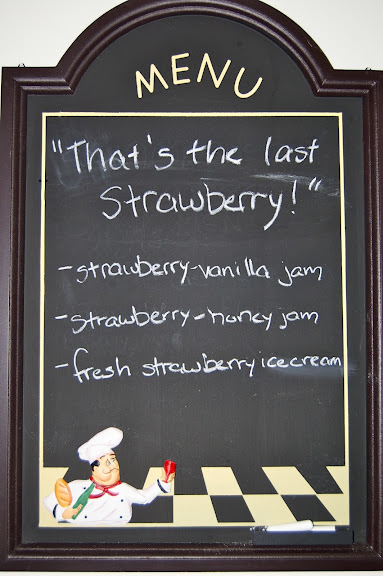 MENU
"That's the last
Strawberry!"
- strawberry-vanilla jam
- strawberry-honey jam
- fresh strawberry ice cream